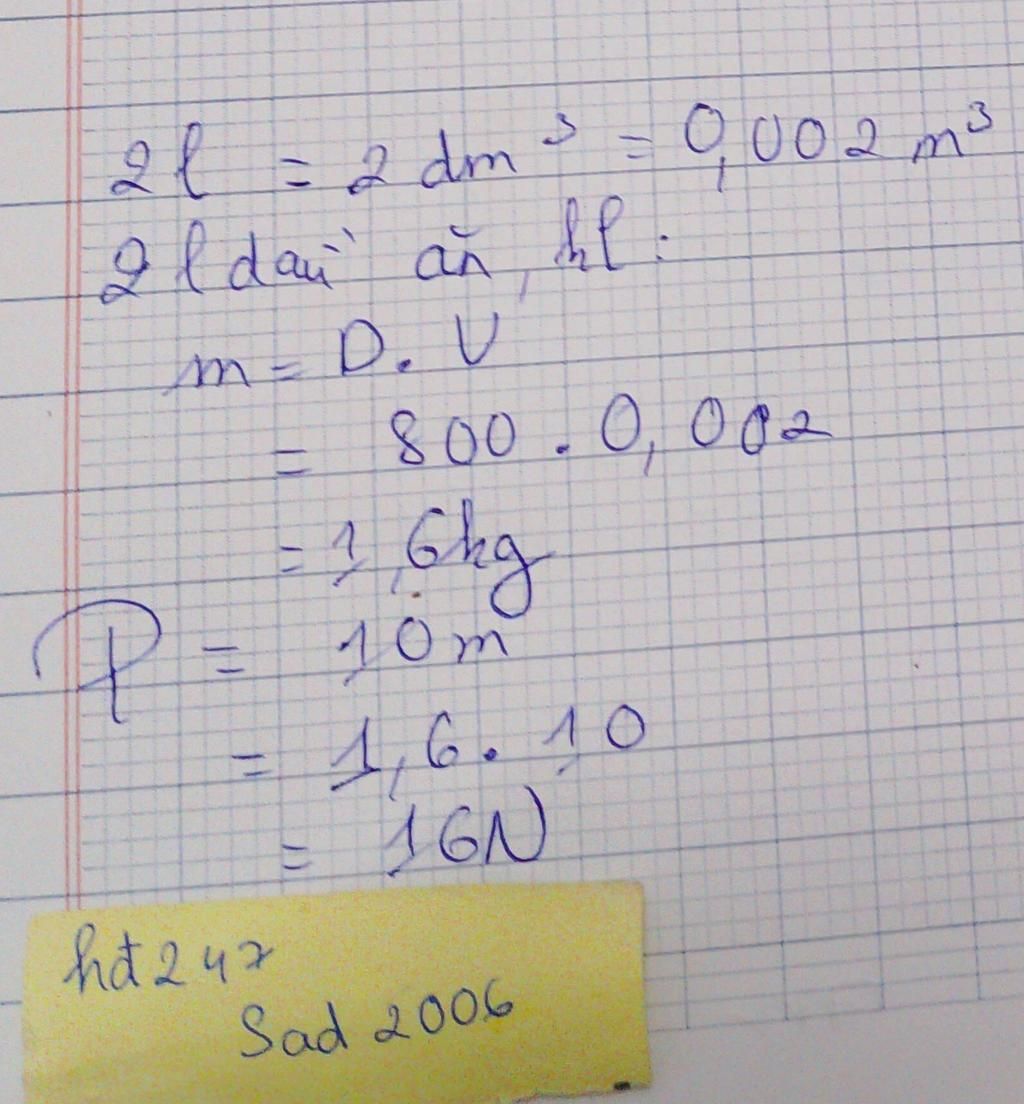 2l = 2 dm³ = 0,002 m³
2l dầu ăn, hl:
m = D. V
= 800 . 0,002
= 1,6kg
P = 10m
= 1,6. 10
= 16N
hđ247
Sad 2006